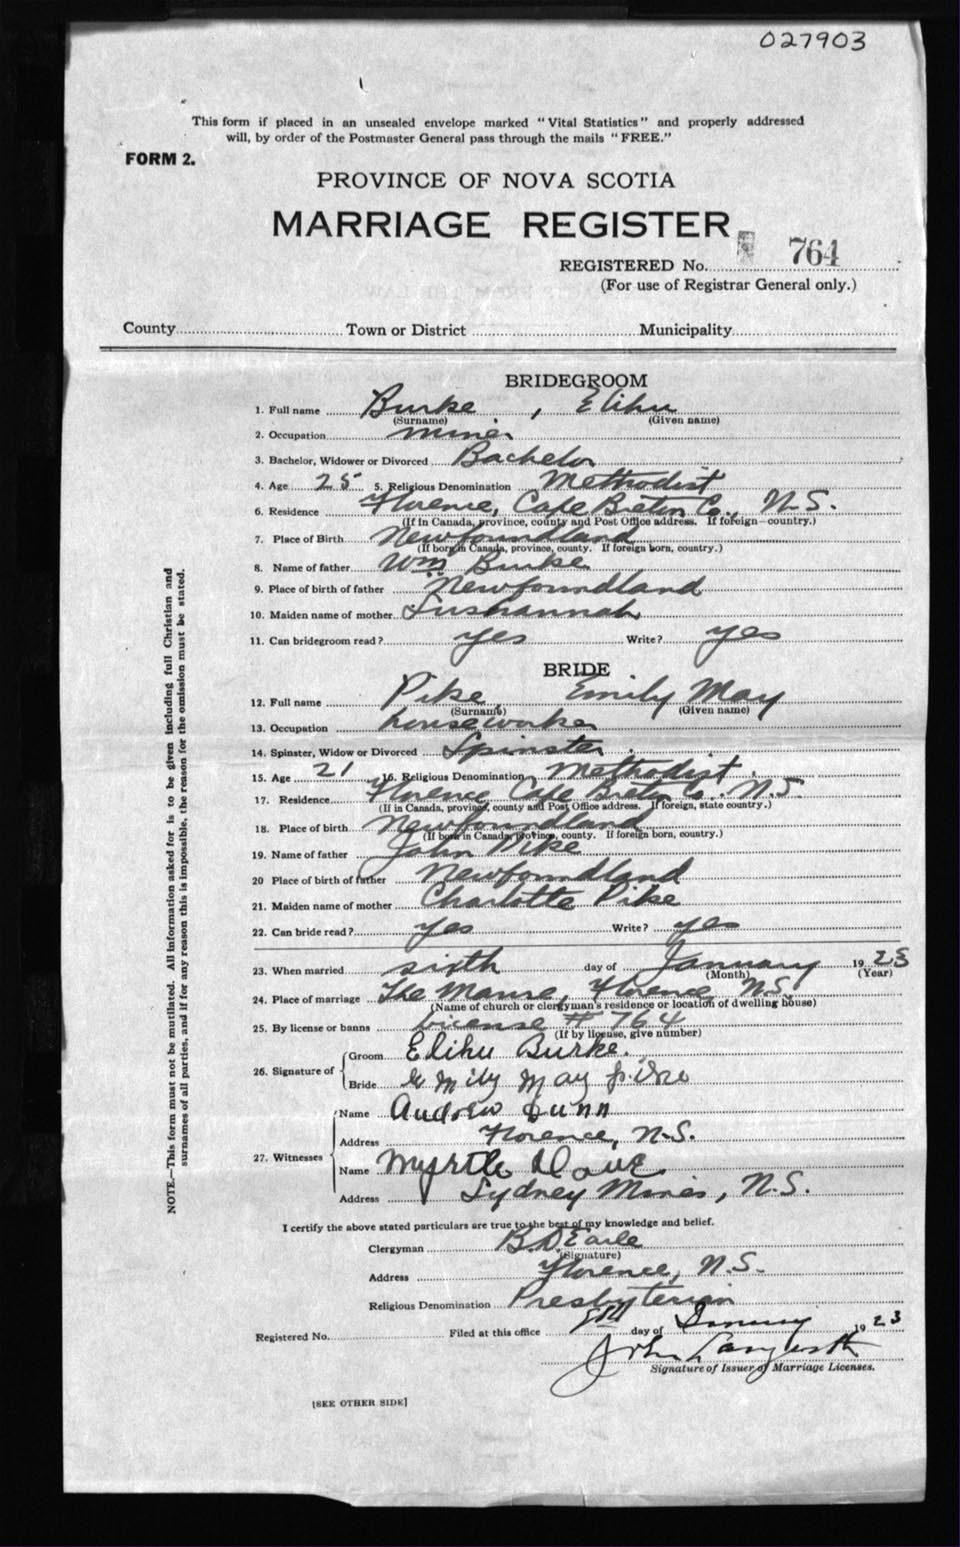 027903
This form if placed in an unsealed envelope marked "Vital Statistics" and properly addressed
will, by order of the Postmaster General pass through the mails "FREE."
FORM 2.
PROVINCE OF NOVA SCOTIA
MARRIAGE REGISTER
REGISTERED No. 764
(For use of Registrar General only.)
County Town or District Municipality
BRIDEGROOM
1. Full name Burke, Elihu
(Surname) (Given name)
2. Occupation miner
3. Bachelor, Widower or Divorced Bachelor
4. Age 25 5. Religious Denomination Methodist
6. Residence Florence, Cape Breton Co., N.S.
(If in Canada, province, county and Post Office address. If foreign—country.)
7. Place of Birth Newfoundland
(If born in Canada, province, county. If foreign born, country.)
8. Name of father Wm Burke
9. Place of birth of father Newfoundland
10. Maiden name of mother Sushannah
11. Can bridegroom read? yes Write? yes
BRIDE
12. Full name Pike Emily May
(Surname) (Given name)
13. Occupation houseworker
14. Spinster, Widow or Divorced Spinster
15. Age 21 16. Religious Denomination Methodist
17. Residence Florence Cape Breton Co. N.S.
(If in Canada, province, county and Post Office address. If foreign, state country.)
18. Place of birth Newfoundland
(If born in Canada, province, county. If foreign born, country.)
19. Name of father John Pike
20 Place of birth of father Newfoundland
21. Maiden name of mother Charlotte Pike
22. Can bride read? yes Write? yes
23. When married sixth day of January 1923
(Month) (Year)
24. Place of marriage The Manse, Florence, N.S.
(Name of church or clergyman's residence or location of dwelling house)
25. By license or banns License # 764
(If by license, give number)
26. Signature of
Groom Elihu Burke.
Bride Emily May Pike
27. Witnesses
Name Andrew Dunn
Address Florence, N.S.
Name Myrtle
Address Sydney Mines, N.S.
I certify the above stated particulars are true to the best of my knowledge and belief.
Clergyman B.D. Earle
(Signature)
Address Florence, N.S.
Religious Denomination Presbyterian
Registered No. Filed at this office day of January 1923
John
Signature of Issuer of Marriage Licenses.
[SEE OTHER SIDE]
NOTE.—This form must not be mutilated. All information asked for is to be given including full Christian and
surnames of all parties, and if for any reason this is impossible, the reason for the omission must be stated.